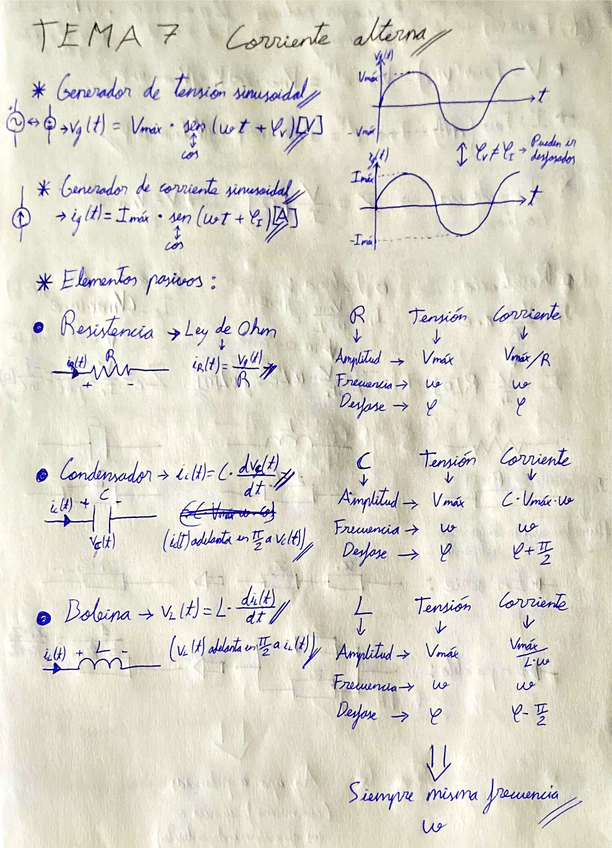 TEMA 7 Corriente alterna
* Generador de tensión sinusoidal
vg(t) = Vmáx · sen (ωt + φv) [V]
cos
vg(t)
Vmáx
t
-Vmáx
φv ≠ φI → Pueden ir desfasados
* Generador de corriente sinusoidal
→ ig(t) = Imáx · sen (ωt + φI) [A]
cos
ig(t)
Imáx
t
-Imáx
* Elementos pasivos:
• Resistencia → Ley de Ohm
iR(t) R
+ -
iR(t) = vR(t)/R
R Tensión Corriente
Amplitud → Vmáx Vmáx/R
Frecuencia → ω ω
Desfase → φ φ
• Condensador → ic(t) = C · dvc(t)/dt
ic(t) + C -
vc(t)
(ic(t) adelanta en π/2 a vc(t))
C Tensión Corriente
Amplitud → Vmáx C·Vmáx·ω
Frecuencia → ω ω
Desfase → φ φ + π/2
• Bobina → vL(t) = L · diL(t)/dt
iL(t) + L -
(vL(t) adelanta en π/2 a iL(t))
L Tensión Corriente
Amplitud → Vmáx Vmáx/L·ω
Frecuencia → ω ω
Desfase → φ φ - π/2
Siempre misma frecuencia
ω